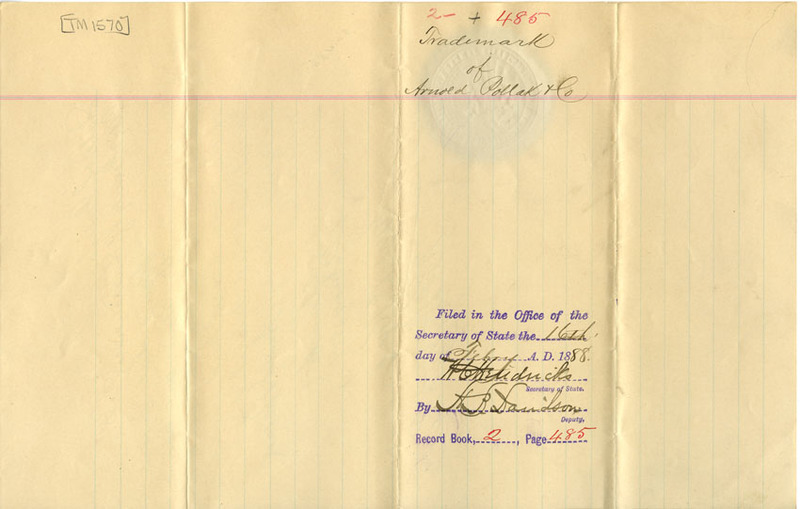 [TM 1570]
2- + 485
Trademark
of
Arnold Pollak & Co
Filed in the Office of the
Secretary of State the 16th
day of Feby A. D. 1888.
W C Hendricks
Secretary of State.
By A B Davidson
Deputy.
Record Book, 2, Page 485